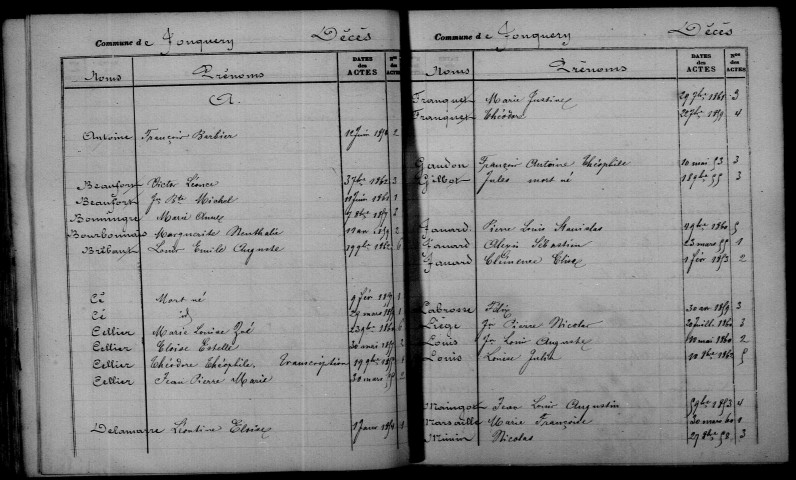 Commune de Jonquery Décès
Noms Prénoms DATES des ACTES Nos des ACTES
A.
Antoine François Barbier Juin 2
Beaufort Victor Léonce 7bre 1862 3
Beaufort Jn Bte Michel Juin 1861 1
Marie Anne
Bourbonnais Marguerite 2
Louis Emile Auguste 9bre 1862 6
Cé Mort né 9 fév 1
Cé id 29 mars 1
Cellier Marie Louise Zoé 23 6
Cellier Eloise Estelle 30 mai
Cellier Théodore Théophile, transcription 19
Cellier Jean Pierre Marie 30 mars 2
Delamarre Léontine Eloise 1 Janv 1
Commune de Jonquery Décès
Noms Prénoms DATES des ACTES Nos des ACTES
Franquet Marie Justine 29 7bre 1861 3
Franquet Théodore 4
Gaudon François Antoine Théophile 10 mai 53 3
Jules mort né 18 9bre 55 3
Pierre Louis Stanislas 9bre 1860 5
Alexis Sébastien 23 mars 55 1
Clémence Elise 1 fév 1853 2
Labrosse Félix 30 avr 1859 3
Liége Jn Pierre Nicolas Juill. 3
Louis Jn Louis Auguste mai 1860 2
Louis Louise Julie 10 8bre 1862 5
Maingot Jean Louis Augustin 9bre 1853 4
Marsaille Marie Françoise 30 mars 60 1
Minin Nicolas 29 8bre 58 3